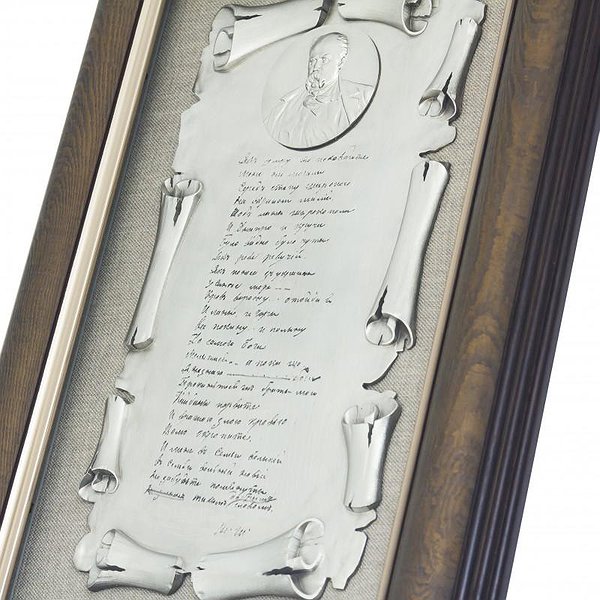 Як умру то поховайте
Мене на могили
Середъ степу широкого
На Вкраини милій
Щоб лани широкополи
И Днипро и кручи
Було видно було чути
Як реве ревучий
Як понесе з Украини
У синєє море
Кровъ ворожу отойди я
И лани и гори
Все покину и полину
До самого Бога
Молитися а до того
Я не знаю Бога
Поховайте та вставайте
Кайдани порвите
И вражою злою кровью
Волю окропите
И мене в семьи великий
В семьи вольний новий
Не забудьте помянути
тихим словом